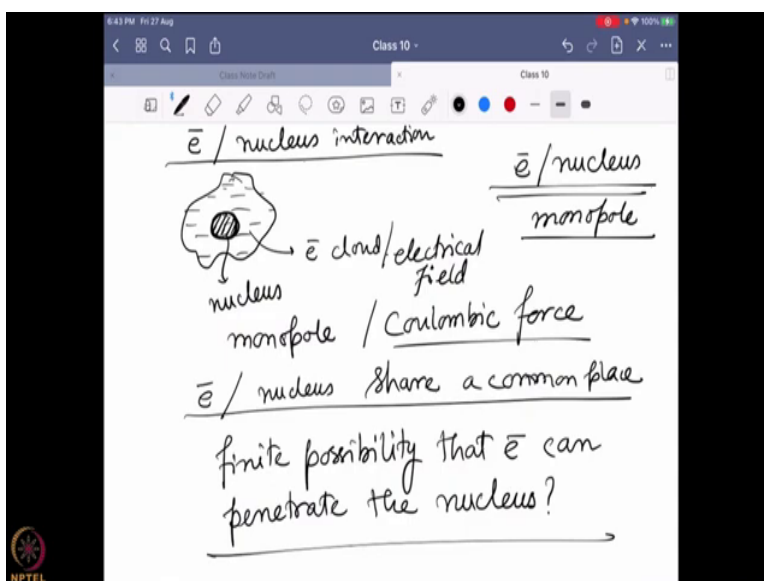 6:43 PM Fri 27 Aug
100%
Class 10
Class Note Draft
Class 10
ē / nucleus interaction
ē / nucleus
monopole
ē cloud / electrical
field
nucleus
monopole / Coulombic force
ē / nucleus share a common place
finite possibility that ē can
penetrate the nucleus?
NPTEL